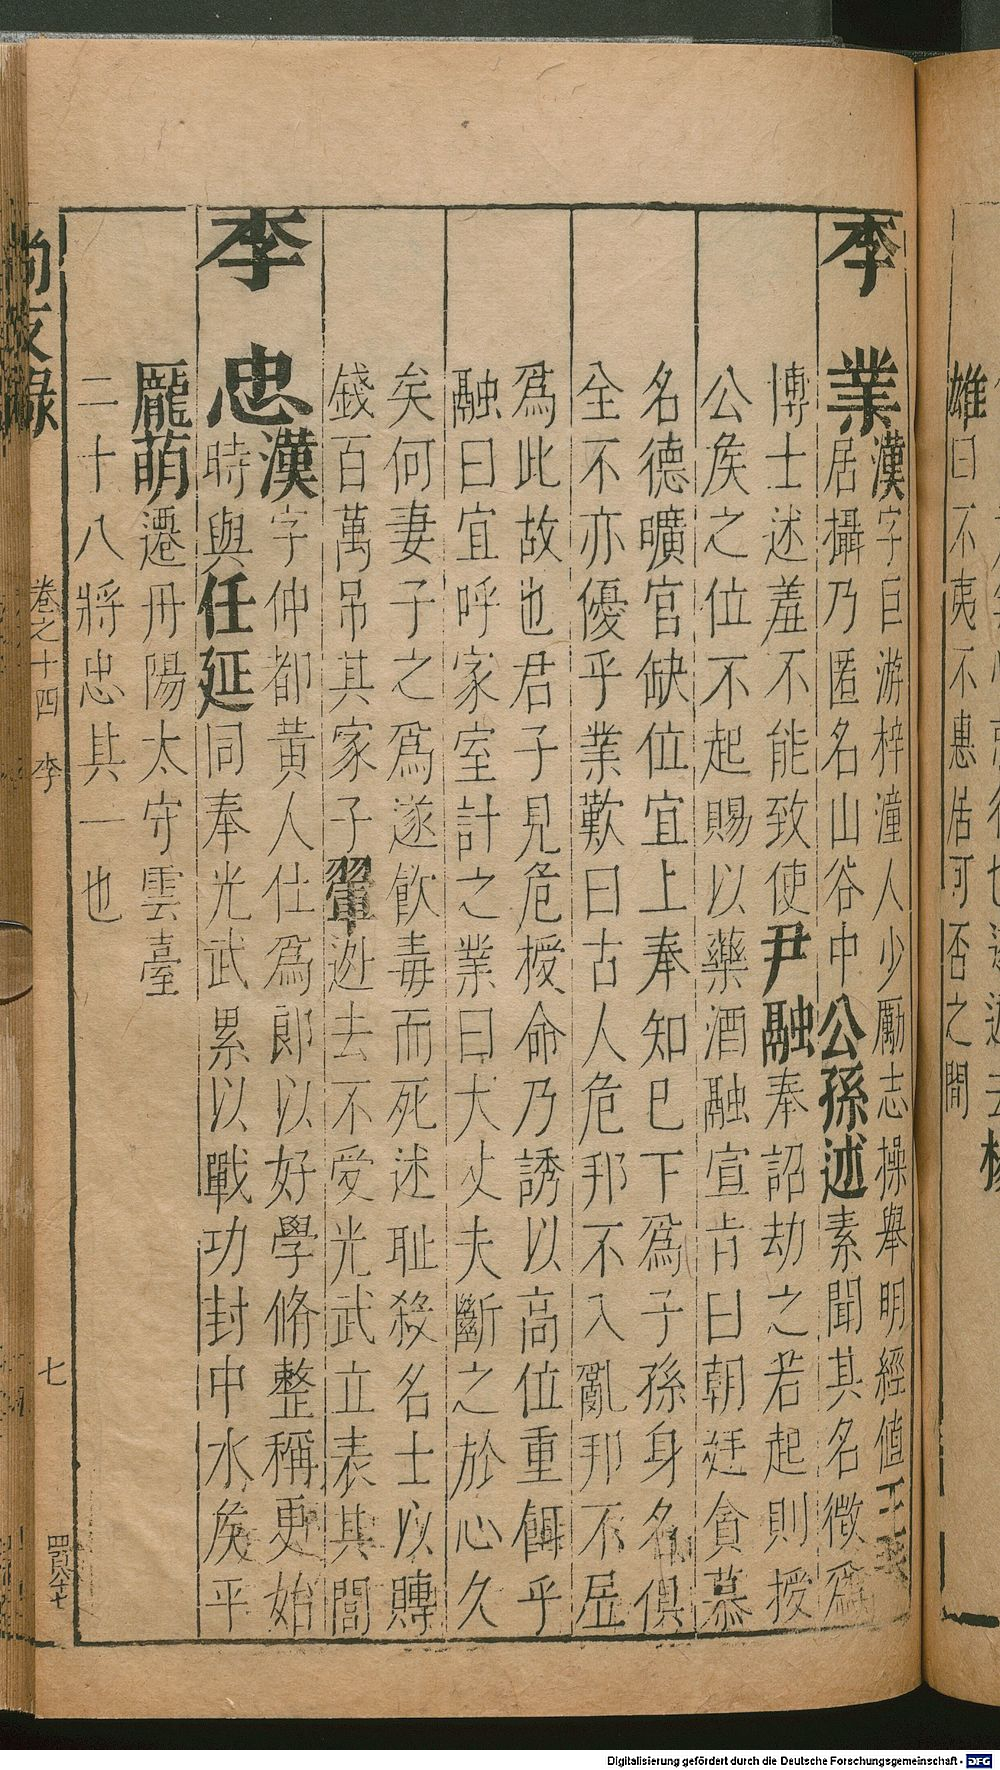 雄曰不夷不惠居可否之間
李業
漢字巨游梓潼人少勵志操舉明經值王莽
居攝乃匿名山谷中公孫述素聞其名徵爲
博士述羞不能致使尹融奉詔劫之若起則授
公矦之位不起賜以藥酒融宣旨曰朝廷貪慕
名德曠官缺位宜上奉知巳下爲子孫身名俱
全不亦優乎業歎曰古人危邦不入亂邦不居
爲此故也君子見危授命乃誘以高位重餌乎
融曰宜呼家室計之業曰大丈夫斷之於心久
矣何妻子之爲遂飲毒而死述耻殺名士以賻
錢百萬吊其家子翬逃去不受光武立表其閭
李忠
漢字仲都黃人仕爲郎以好學脩整稱更始
時與任延同奉光武累以戰功封中水矦平
龐萌遷丹陽太守雲臺
二十八將忠其一也
尚友錄
卷之十四 李
七
四百八十七
Digitalisierung gefördert durch die Deutsche Forschungsgemeinschaft - DFG